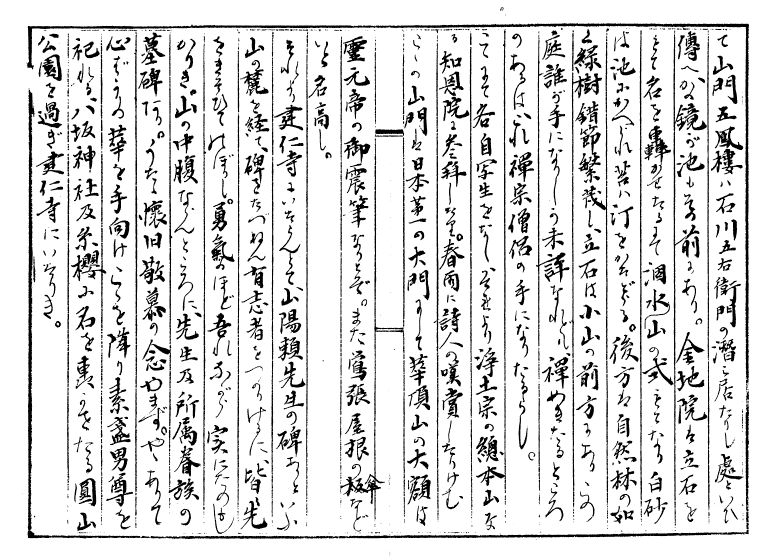 て山門五鳳樓ハ石川五右衛門の潜ミ居たりし處といひ
傳へかの鏡が池も寺前にあり。金地院は立石を
もて名を轟かせたるもて涸水山の式をとなり白砂
は池にかへどれ苔ハ汀をかたどる。後方は自然林の如
く緑樹錯節繁茂し、立石は小山の前方にありこの
庭誰が手になりしか未詳なれども禪めきたるところ
のあるはいづれ禪宗僧侶の手になりたるらし。
こゝにて各自写生をなしそれより浄土宗の總本山な
る知恩院に参拝しけり。春雨に詩人の嘆賞したりけむ
この山門は日本第一の大門にして華頂山の大額は
靈元帝の御震筆なりとぞ。また鴬張屋根の傘など
いと名高し。
それより建仁寺にいそぐとて、山陽頼先生の碑ありといふ
山の麓を経て、碑をたづねん有志者をつのりけるに皆先
をきそひてのぼりし勇氣のほど吾れながら実にたのもし
かりき。山の中腹なるところに、先生及所属眷族の
墓碑たつ。うたゝ懐旧敬慕の念やまず。やゝありて
心ばかりの華を手向けこゝを降り素盞男尊を
祀れる八坂神社及糸櫻に名を轟かせたる圓山
公園を過ぎ建仁寺にいたりき。